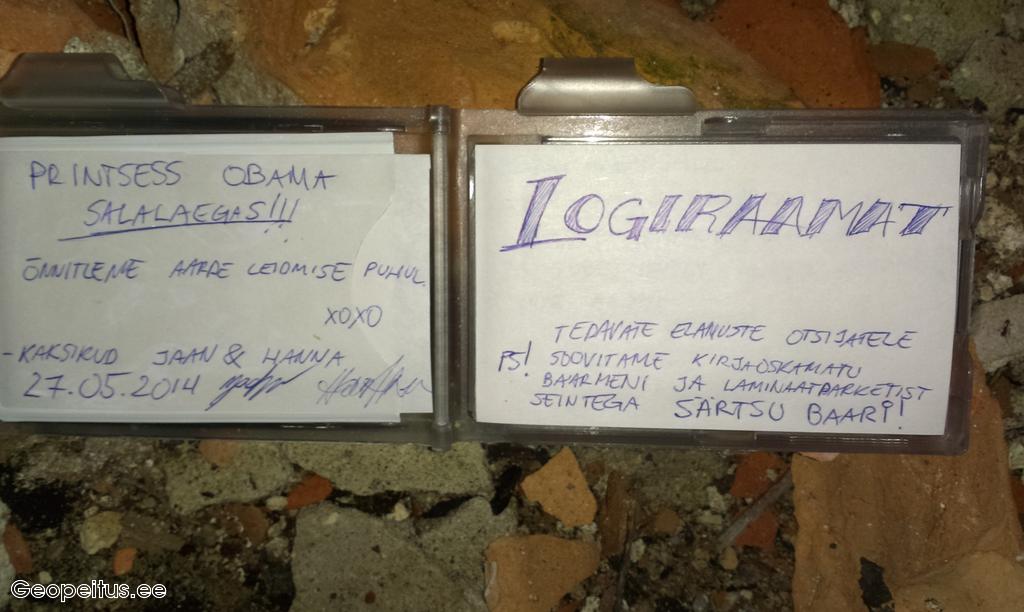 PRINTSESS OBAMA
SALALAEGAS!!!
ÕNNITLEME AARDE LEIDMISE PUHUL.
XOXO
- KAKSIKUD JAAN & HANNA
27.05.2014
LOGIRAAMAT
TEDAVATE ELAMUSTE OTSIJATELE
PS! SOOVITAME KIRJAOSKAMATU
BAARMENI JA LAMINAATPARKETIST
SEINTEGA SÄRTSU BAARI!
Geopeitus.ee